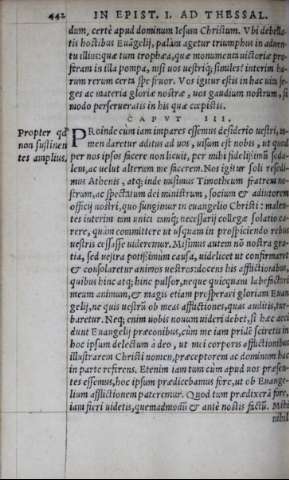 442 IN EPIST. I. AD THESSAL.
dum, certè apud dominum Iesum Christum. Vbi debella-
tis hostibus Euāgelij, palàm agetur triumphus in aduen-
tu illius: quæ tum trophæa, quæ monumenta uictoriæ pro-
feram in illa pompa, nisi uos uestriq́; similes? interim ha-
rum rerum certa spe fruor. Vos igitur estis in hac uita se-
ges ac materia gloriæ nostræ, uos gaudium nostrum, si
modo perseueratis in his quæ cœpistis.
CAPVT III.
Propter qđ
non sustinen
tes amplius.
PRoinde cùm iam impares essemus desiderio uestri, ta-
men daretur aditus ad uos, uisum est nobis, ut quod
per nos ipsos facere non licuit, per mihi fidelissimū soda-
lem, ac uelut alterum me facerem. Nos igitur soli resedi-
mus Athenis, atq; inde misimus Timotheum fratrem no-
strum, ac spectatum dei ministrum, socium & adiutorem
officij nostri, quo fungimur in euangelio Christi: malen-
tes interim eum unici eiusq́; necessarij collegæ solatio ca-
rere, quàm committere ut usquam in prospiciendo rebus
uestris cessasse uideremur. Misimus autem nō nostra gra-
tia, sed uestra potissimùm causa, uidelicet ut confirmaret
& consolaretur animos uestros: docens his afflictionibus,
quibus hinc atq; hinc pulsor, neque quicquam labefactari
meum animum, & magis etiam prosperari gloriam Euan
gelij, ne quis uestrū ob meas afflictiones, quas auditis, tur-
baretur. Neq; enim uobis nouum uideri debet, si hæc acci
dunt Euangelij præconibus, cùm me iam pridē sciretis in
hoc ipsum delectum à deo, ut mei corporis afflictionibus
illustrarem Christi nomen, præceptorem ac dominum hac
in parte referens. Etenim iam tum cùm apud uos præsen-
tes essemus, hoc ipsum prædicebamus fore, ut ob Euange-
lium afflictionem pateremur. Quod tum prædixerā fore,
iam fieri uidetis, quemadmodū & antè nostis factū. Mihi
nihil